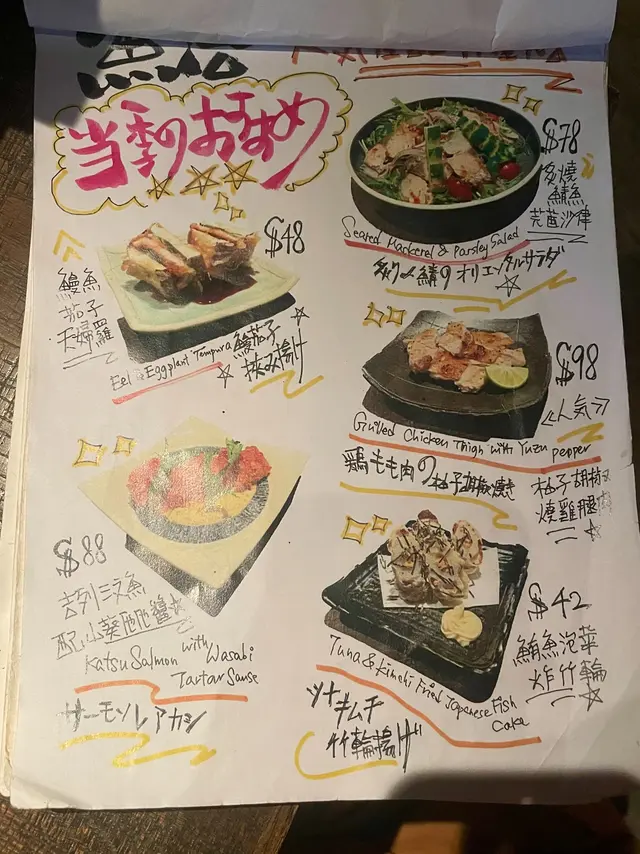 当季のおすすめ
$48
鰻魚
茄子
天婦羅
Eel & Eggplant Tempura
鰻茄子
挟み揚げ
$78
鯖魚
芫茜沙律
Seared Mackerel & Parsley Salad
炙〆鯖のオリエンタルサラダ
$98
《人気》
Grilled Chicken Thigh with Yuzu pepper
鶏もも肉の柚子胡椒焼き
柚子胡椒
燒雞腿
$88
吉列三文魚
配山葵他他醬
Katsu Salmon with Wasabi
Tartar Sause
サーモンレアカツ
$42
鮪魚泡菜
炸竹輪
Tuna & Kimchi Fried Japanese Fish
Cake
ツナ
キムチ
竹輪揚げ